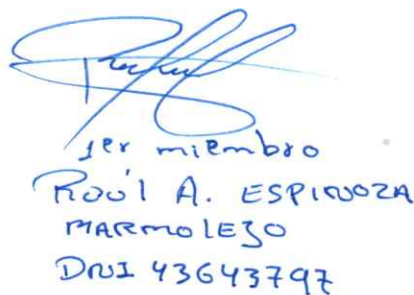 1er miembro
Raúl A. ESPINOZA
MARMOLEJO
DNI 43643797